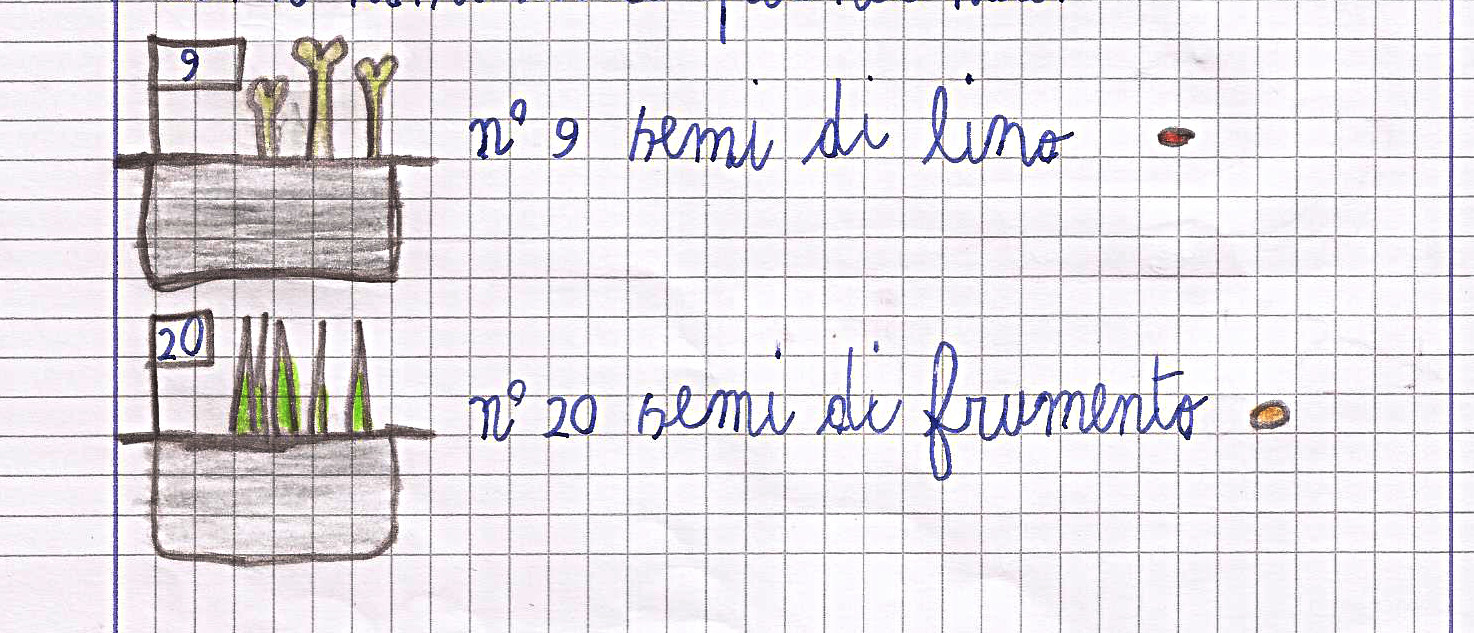 9
n° 9 semi di lino
20
n° 20 semi di frumento